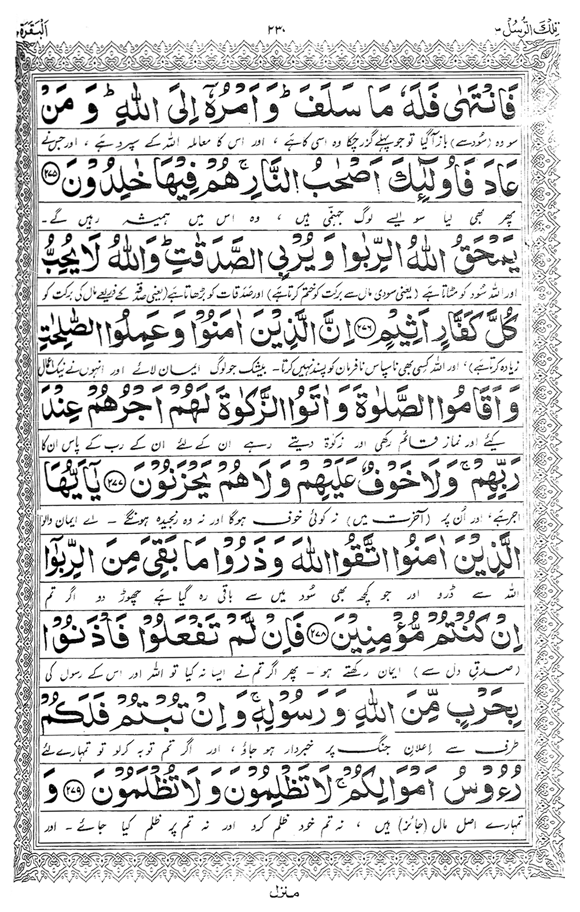 تِلْكَ الرُّسُلُ ٣ ٢٣٠ اَلْبَقَرَة ٢
فَانْتَهٰى فَلَهٗ مَا سَلَفَ ؕ وَ اَمْرُهٗۤ اِلَى اللّٰهِ ؕ وَ مَنْ
سو وہ (سُود سے) باز آ گیا تو جو پہلے گزر چکا وہ اسی کا ہے ، اور اس کا معاملہ اللہ کے سپرد ہے ، اور جس نے
عَادَ فَاُولٰٓئِكَ اَصْحٰبُ النَّارِ ۚ هُمْ فِيْهَا خٰلِدُوْنَ ﴿۲۷۵﴾
پھر بھی لیا سو ایسے لوگ جہنمی ہیں ، وہ اس میں ہمیشہ رہیں گے۔
يَمْحَقُ اللّٰهُ الرِّبٰوا وَ يُرْبِي الصَّدَقٰتِ ؕ وَ اللّٰهُ لَا يُحِبُّ
اور اللہ سُود کو مٹاتا ہے (یعنی سودی مال سے برکت کو ختم کرتا ہے) اور صَدقات کو بڑھاتا ہے (یعنی صدقہ کے ذریعے مال کی برکت کو
كُلَّ كَفَّارٍ اَثِيْمٍ ﴿۲۷۶﴾ اِنَّ الَّذِيْنَ اٰمَنُوْا وَ عَمِلُوا الصّٰلِحٰتِ
زیادہ کرتا ہے)، اور اللہ کسی بھی ناسپاس نافرمان کو پسند نہیں کرتا۔ بیشک جو لوگ ایمان لائے اور انہوں نے نیک اعمال
وَ اَقَامُوا الصَّلٰوةَ وَ اٰتَوُا الزَّكٰوةَ لَهُمْ اَجْرُهُمْ عِنْدَ
کیئے اور نماز قائم رکھی اور زکوٰۃ دیتے رہے ان کے لئے ان کے رب کے پاس ان کا
رَبِّهِمْ ۚ وَ لَا خَوْفٌ عَلَيْهِمْ وَ لَا هُمْ يَحْزَنُوْنَ ﴿۲۷۷﴾ يٰۤاَيُّهَا
اجر ہے ، اور اُن پر (آخرت میں) نہ کوئی خوف ہو گا اور نہ وہ رنجیدہ ہونگے ۔ اے ایمان والو!
الَّذِيْنَ اٰمَنُوا اتَّقُوا اللّٰهَ وَ ذَرُوْا مَا بَقِيَ مِنَ الرِّبٰۤوا
اللہ سے ڈرو اور جو کچھ بھی سُود میں سے باقی رہ گیا ہے چھوڑ دو اگر تم
اِنْ كُنْتُمْ مُّؤْمِنِيْنَ ﴿۲۷۸﴾ فَاِنْ لَّمْ تَفْعَلُوْا فَاْذَنُوْا
(صدقِ دل سے) ایمان رکھتے ہو۔ پھر اگر تم نے ایسا نہ کیا تو اللہ اور اس کے رسول کی
بِحَرْبٍ مِّنَ اللّٰهِ وَ رَسُوْلِهٖ ۚ وَ اِنْ تُبْتُمْ فَلَكُمْ
طرف سے اعلانِ جنگ پر خبردار ہو جاؤ ، اور اگر تم توبہ کر لو تو تمہارے لئے
رُءُوْسُ اَمْوَالِكُمْ ۚ لَا تَظْلِمُوْنَ وَ لَا تُظْلَمُوْنَ ﴿۲۷۹﴾ وَ
تمہارے اصل مال (جائز) ہیں ، نہ تم خود ظلم کرو اور نہ تم پر ظلم کیا جائے۔ اور
منزل